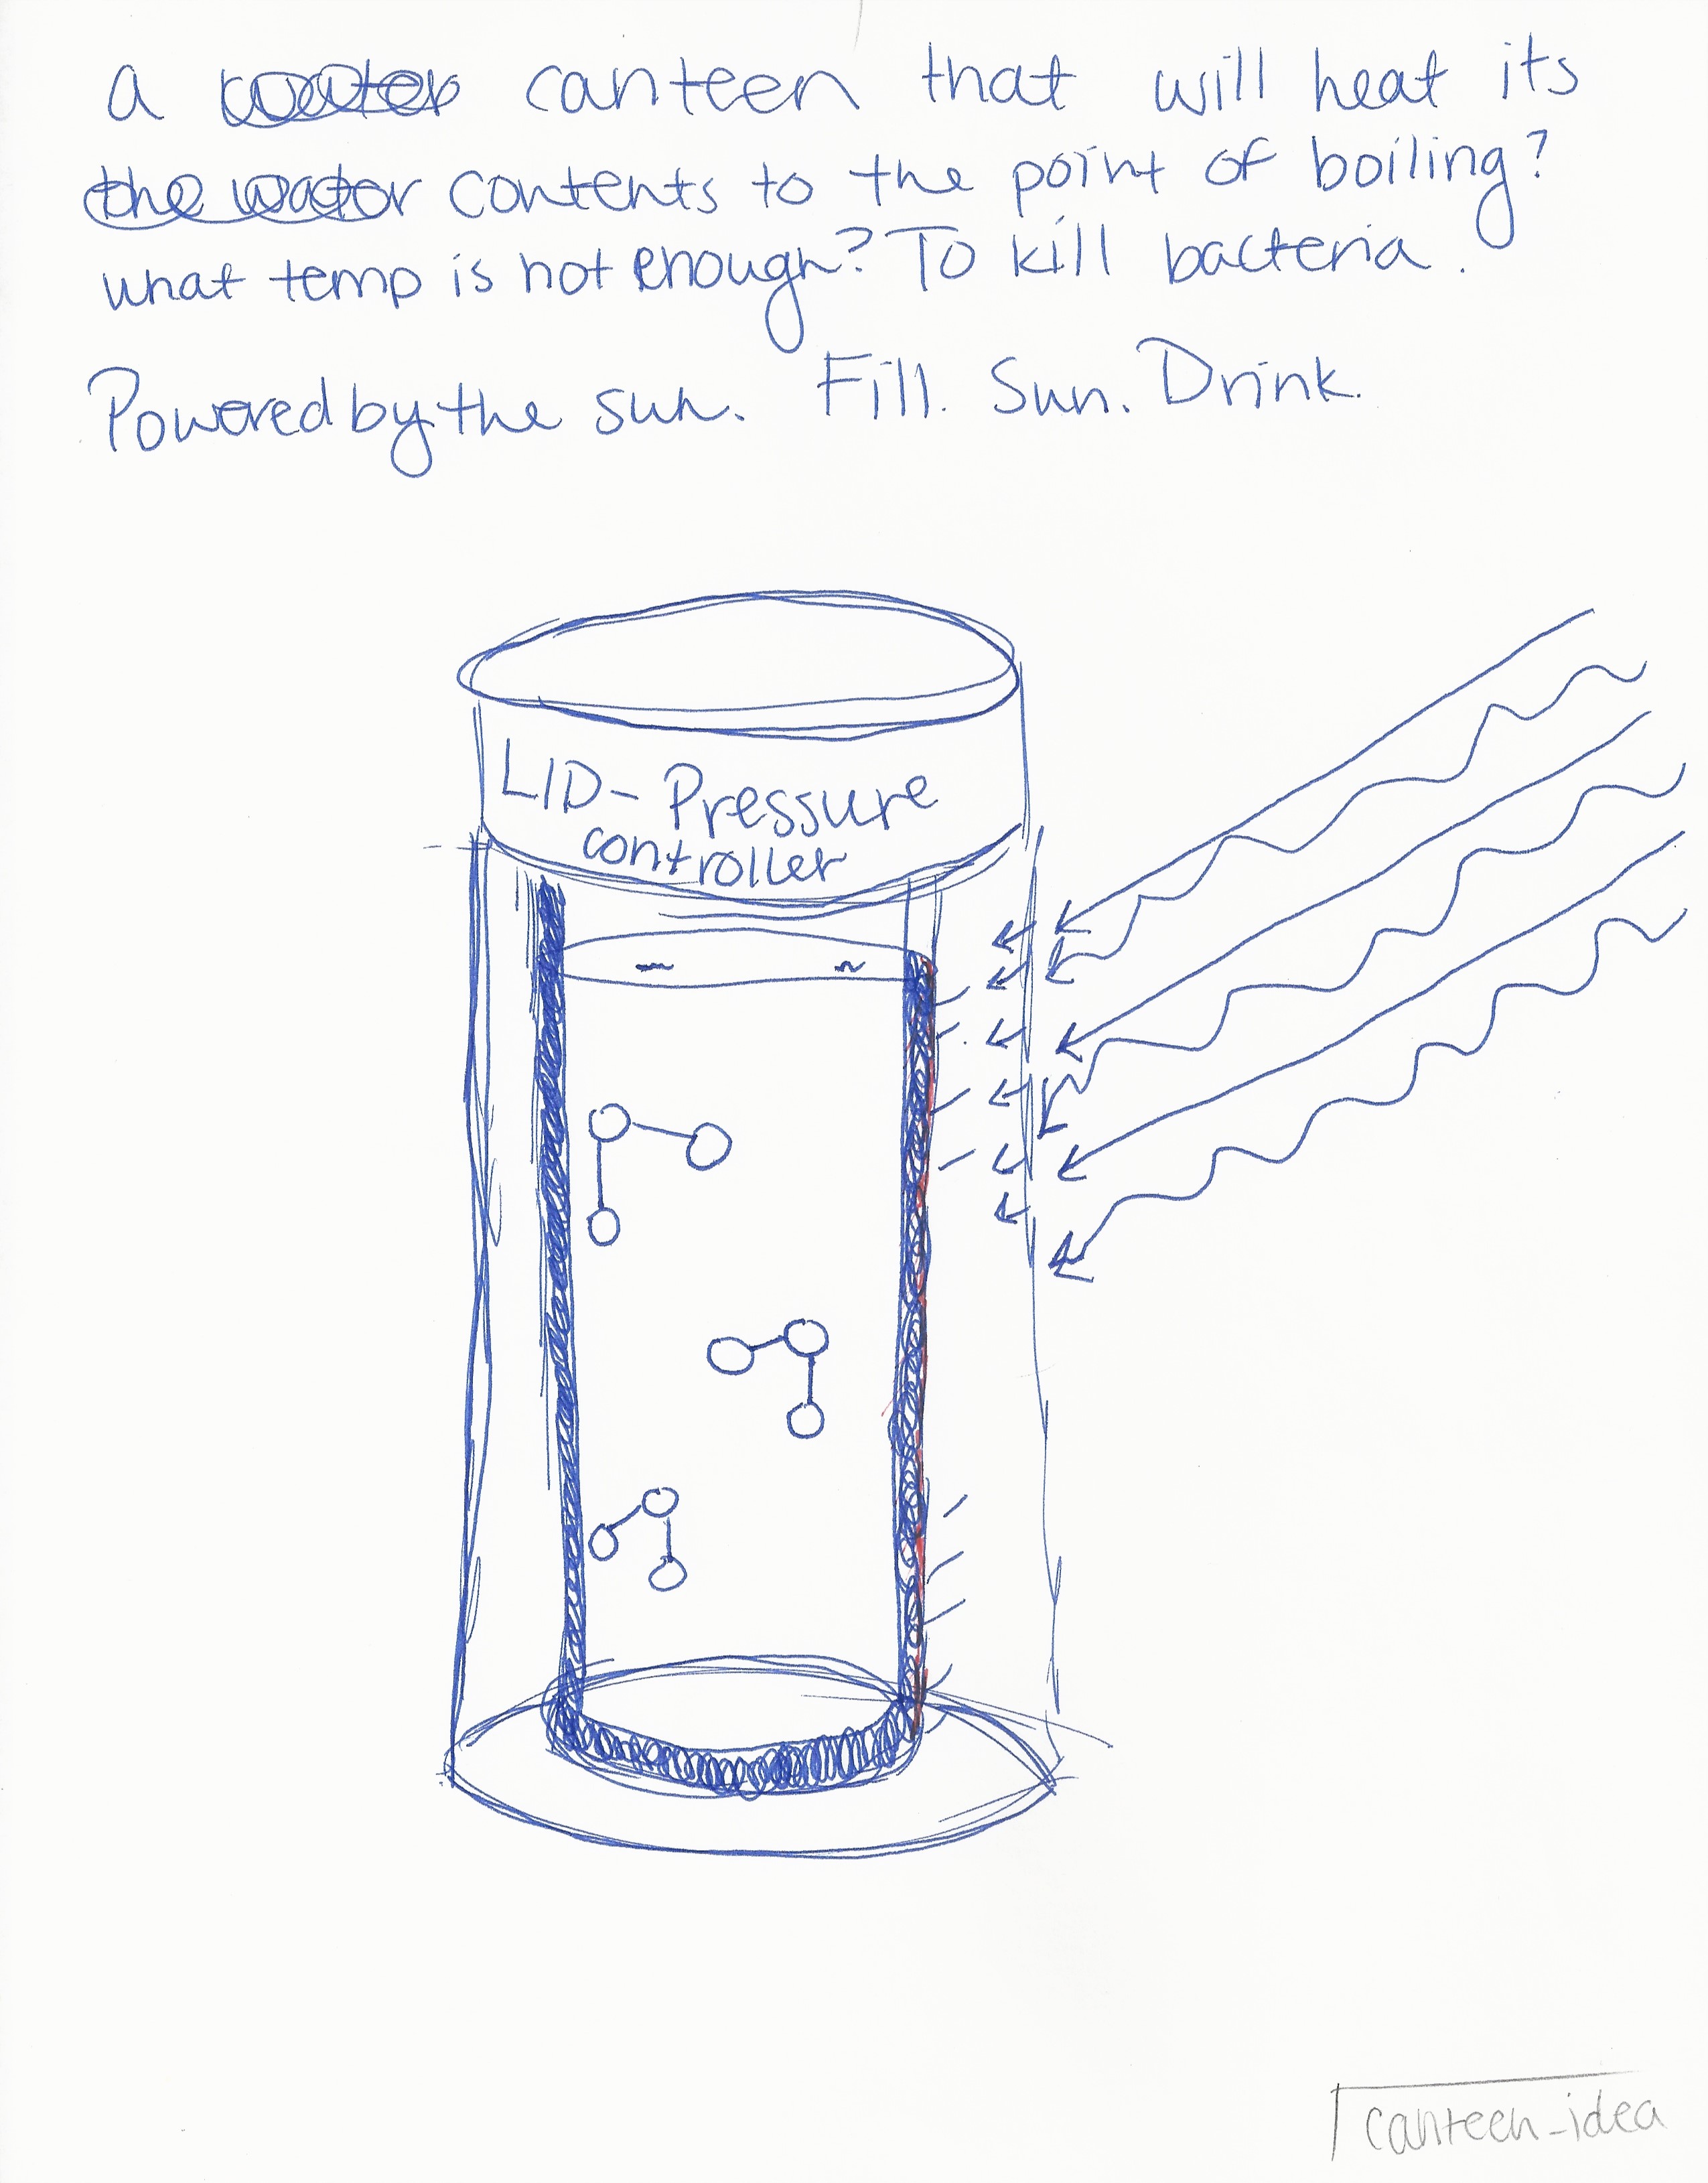 a water canteen that will heat its
the water contents to the point of boiling?
what temp is not enough? To kill bacteria.
Powered by the sun. Fill. Sun. Drink.
LID- Pressure
controller
canteen_idea